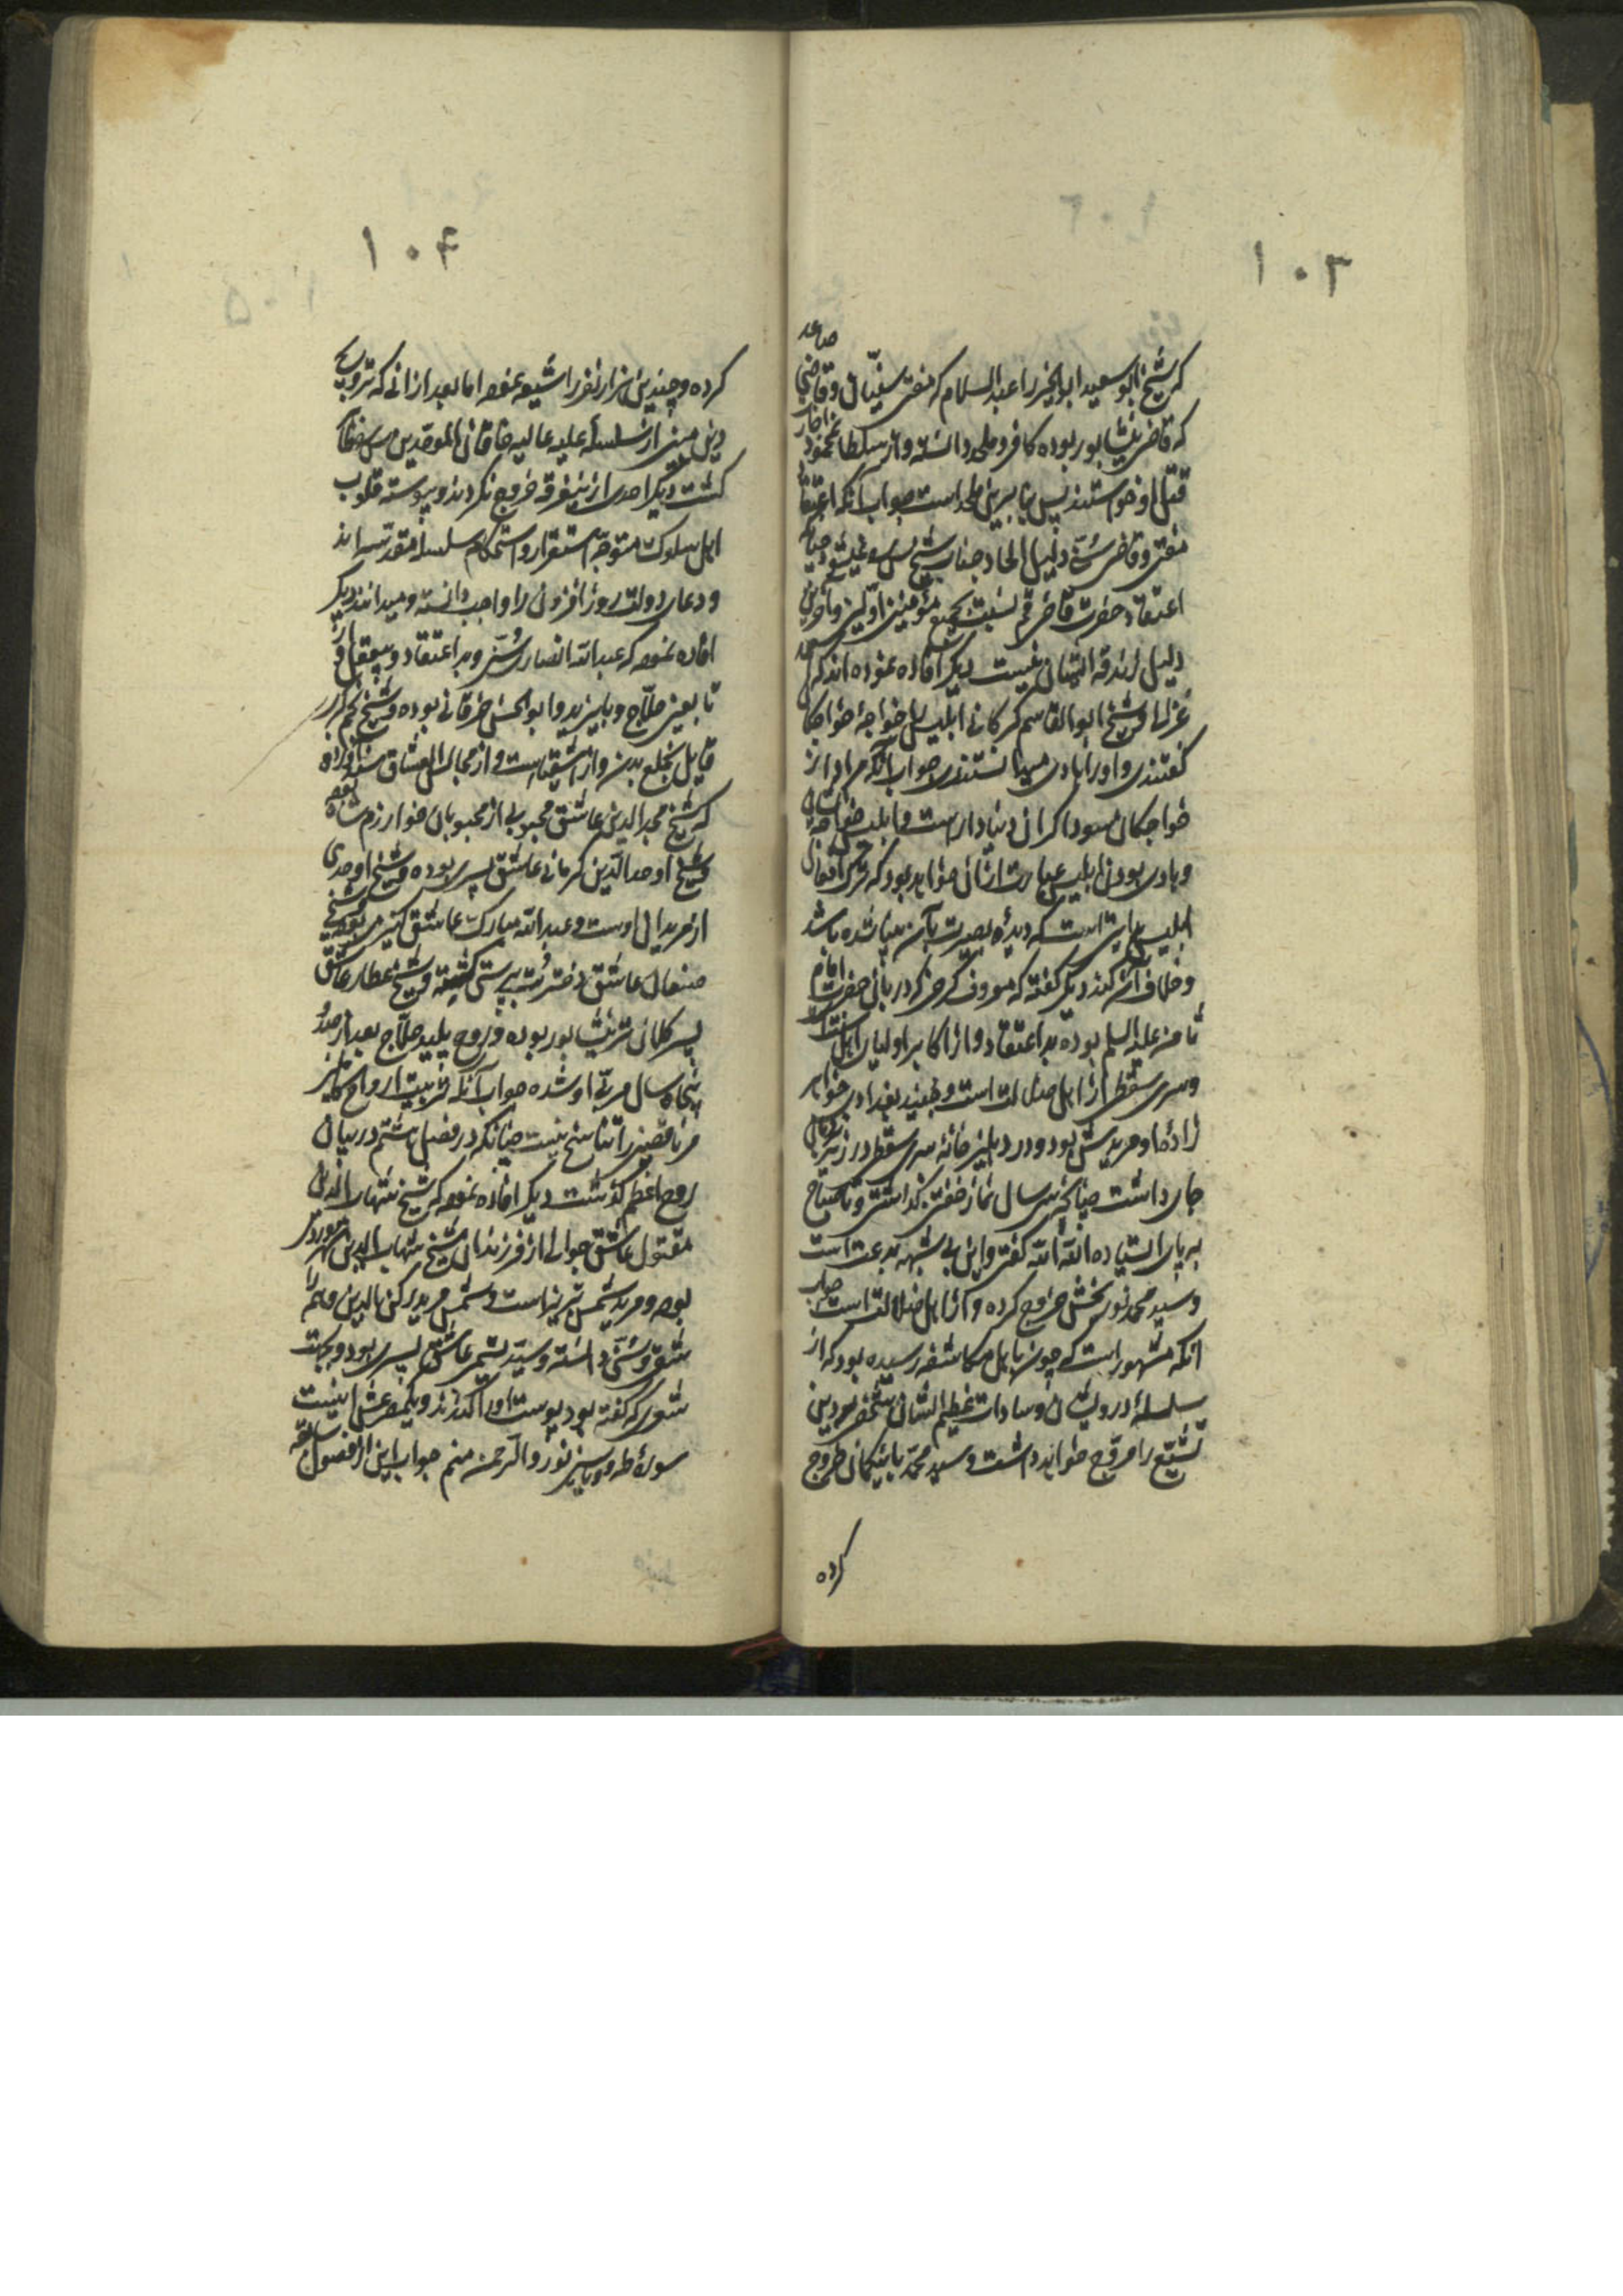 ۱۰۳
که شیخ ابو سعید ابوالخیر را عبدالسلام که مفتی سنیان و قاضی صاعد
که قاضی نیشابور بوده کافر و ملحد دانسته و از سلطان محمود
قتل او خواستند پس بنابرین ملحد است جواب آنکه اعتقاد
مفتی و قاضی سنی دلیل الحاد جناب شیخ نمیشود چنانچه
اعتقاد حضرت قاضی قم نسبت بجمیع مؤمنین اولین و آخرین
دلیل زندقه ایشان نیست دیگر افاده نموده اند که احمد
غزالی و شیخ ابوالقاسم کرکانی ابلیس را خواجهٔ خواجکان
گفتندی و او را هادی میدانستندی جواب آنکه مراد از
خواجکان سوداکران دنیادار است و ابلیس خواجهٔ ایشان
و هادی بودن ابلیس عبارت از آن خواهد بود که ترک افعال
ابلیس هدایتی است که دیدهٔ بصیرت بآن بینا شده باشد
و خلاف آن کند دیگر گفته که معروف کرخی که دربان حضرت امام
ثامن علیه السلم بوده بد اعتقاد و از اکابر اولیای اهل
و سری سقطی از اهل ضلالت است و جنید بغدادی خواهر
زادهٔ او مریدش بود و در دهلیز خانهٔ سری سقطی در زیر نردبان
جای داشت چنانچه سی سال نماز خفتن بگذاشتی و تا صباح
بر پای ایستاده الله الله گفتی و این بی شبهه بدعت است
و سید محمد نوربخش خروج کرده و از اهل ضلالت است جواب
آنکه مشهور است که چون باهل مکاشفه رسیده بود که از
سلسلهٔ درویشان و سادات عظیم الشان شخصی دین
تشیع را مروج خواهد داشت و سید محمد باین گمان خروج
کرده
۱۰۴
کرده و چندین هزار نفر را شیعه نموده اما بعد از آنی که ترویج
دین مبین از سلسله علیه عالیه خاقانی الموحدین
گشت دیگر احدی ازینفرقه خروج نکردند و پیوسته قلوب
اهل سلوک متوجه استقرار و استحکام سلسله مقدسه اند
و دعای دولت روز افزون را واجب دانسته و میدانند دیگر
افاده نموده که عبدالله انصاری سنی و بد اعتقاد و بیعقل و از
تابعین حلاج و بایزید و ابوالحسن خرقانی بوده و شیخ نجم کبری
قایل بخلع بدن و از اشقیا است و از مجالس العشاق
که شیخ مجدالدین عاشق محبوبی از محبوبان خوارزم شاه بوده
و شیخ اوحدالدین کرمانی عاشق پسری بوده و شیخ اوحدی
از مریدان اوست و عبدالله مبارک عاشق کنیزی بوده و شیخ
صنعان عاشق دختر بت پرستی گشته و شیخ عطار عاشق
پسر کلانتر نیشابور بوده و روح پلید حلاج بعد از صد و
پنجاه سال مربی او شده جواب آنکه تربیت ارواح کاملین
مر ناقصین را تناسخ نیست چنانکه در فصل هشتم در بیان
روح اعظم گذشت دیگر افاده نموده که شیخ شهاب الدین
مقتول عاشق جوانی از فرزندان شیخ شهاب الدین سهروردی
بوده و مرید شمس تبریز است و شمس مرید رکن الدین و هم را
شقی و سنی دانسته و سید نسیمی عاشق پسری بوده و بجهت
شعری که گفته بود پوست او را کندند و یکمصرعش اینست
سورهٔ طه و یاسین نور و الرحمن منم جواب این از فصول سابقه